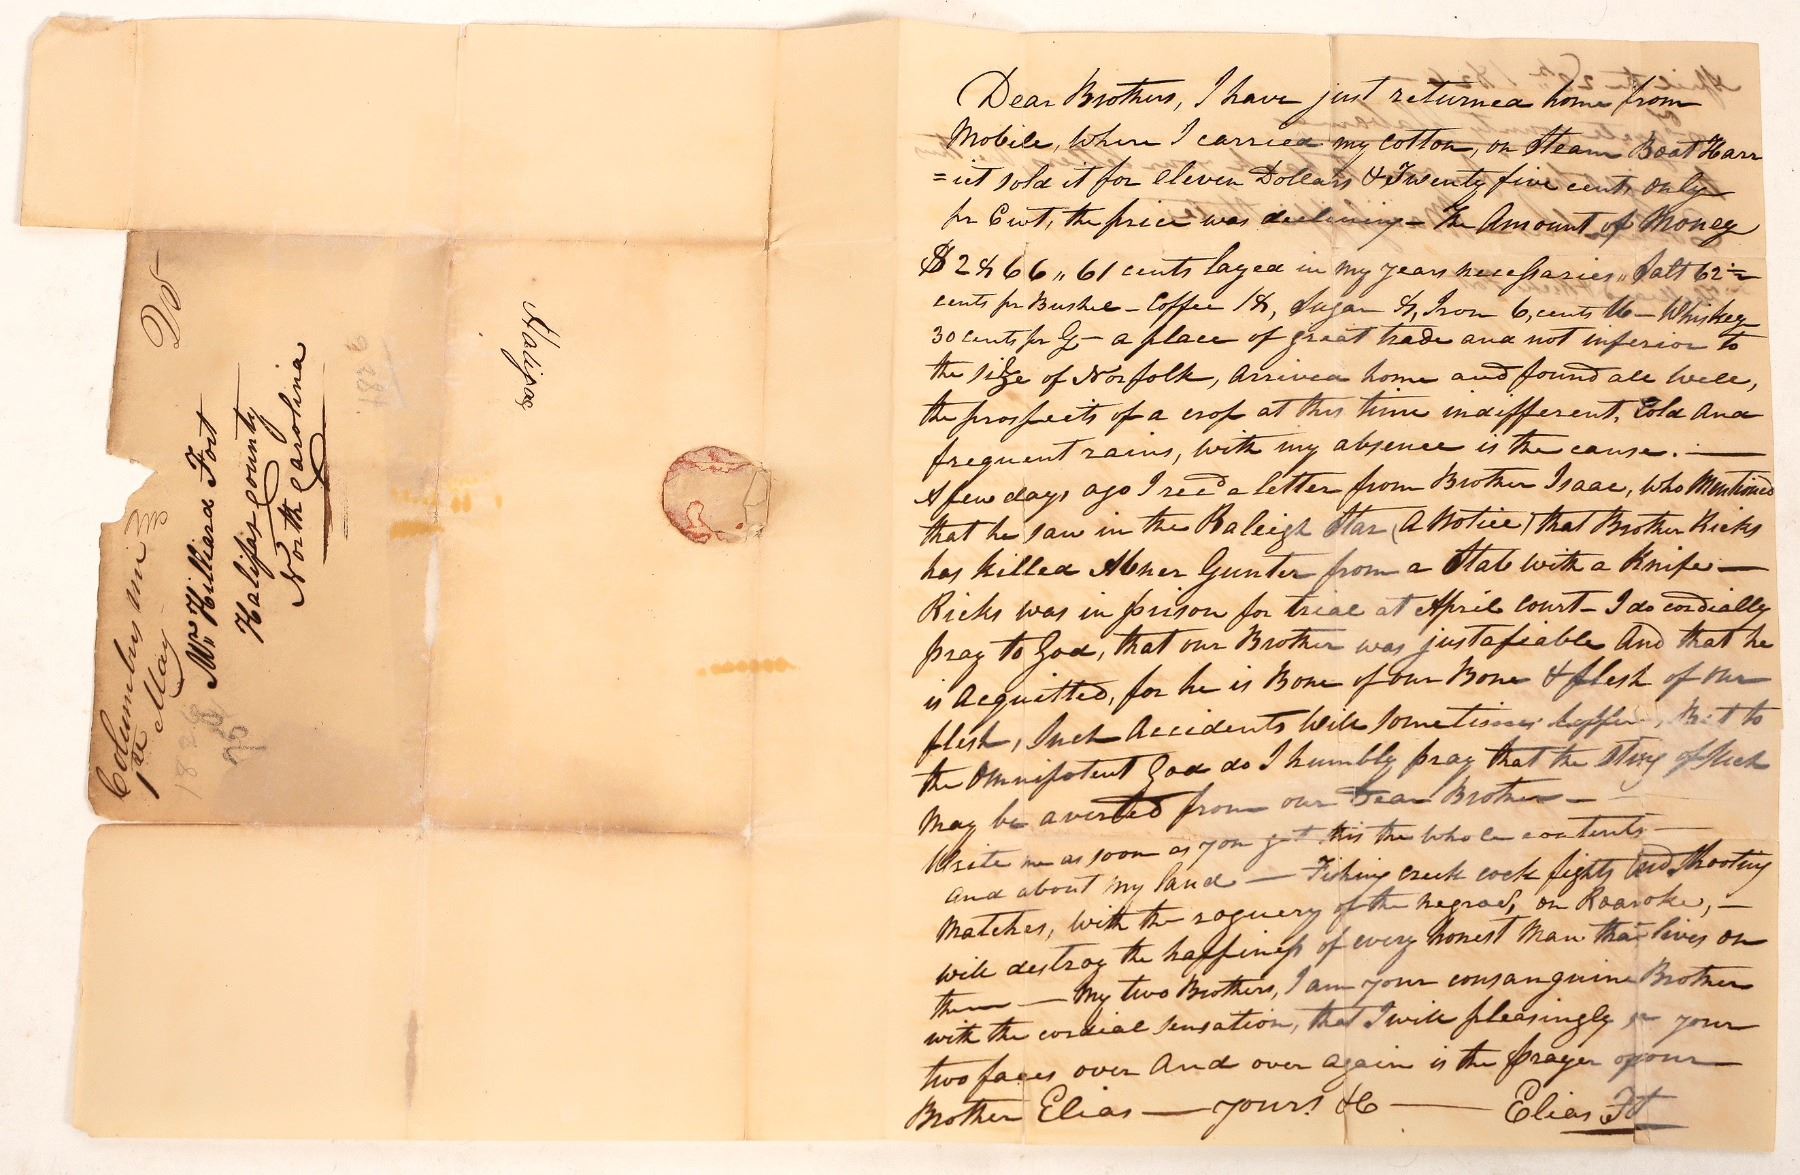 Dear Brothers, I have just returned home from
Mobile, where I carried my cotton, on Steam Boat Harr
=iet sold it for Eleven Dollars & Twenty five cents only
pr Cwt, the price was declining – The Amount of Money
$2866,,61 cents layed in my years necessaries,, Salt 62½
cents pr Bushel – Coffee 18, Sugar 8, Iron 6, cents lb – Whiskey
30 cents pr G – a place of great trade and not inferior to
the size of Norfolk, arrived home and found all well,
the prospects of a crop at this time indifferent, Cold and
frequent rains, with my absence is the cause. —
A few days ago I recd a letter from Brother Isaac, who Mentioned
that he saw in the Raleigh Star (A Notice) that Brother Ricks
has killed Abner Gunter from a Stab with a Knife —
Ricks was in prison for trial at April Court – I do cordially
pray to God, that our Brother was justafiable And that he
is Acquitted, for he is Bone of our Bone & flesh of our
flesh, Such Accidents will sometimes happen, But to
the Omnipotent God do I humbly pray that the Sting of Such
May be averted from our Dear Brother —
Write me as soon as you get this the whole contents —
and about my land — Fishing creek cock fights and Shooting
Matches, with the roguery of the negroes, on Roanoke, —
will destroy the happiness of every honest Man that lives on
them — My two Brothers, I am your consanguine Brother
with the cordial sensation, that I will pleasingly your
two faces over And over again is the prayer of your
Brother Elias — yours &C — Elias Fort
Halifax
Columbus Mi
1st May
Mr. Hilliard Fort
Halifax County
North Carolina
25